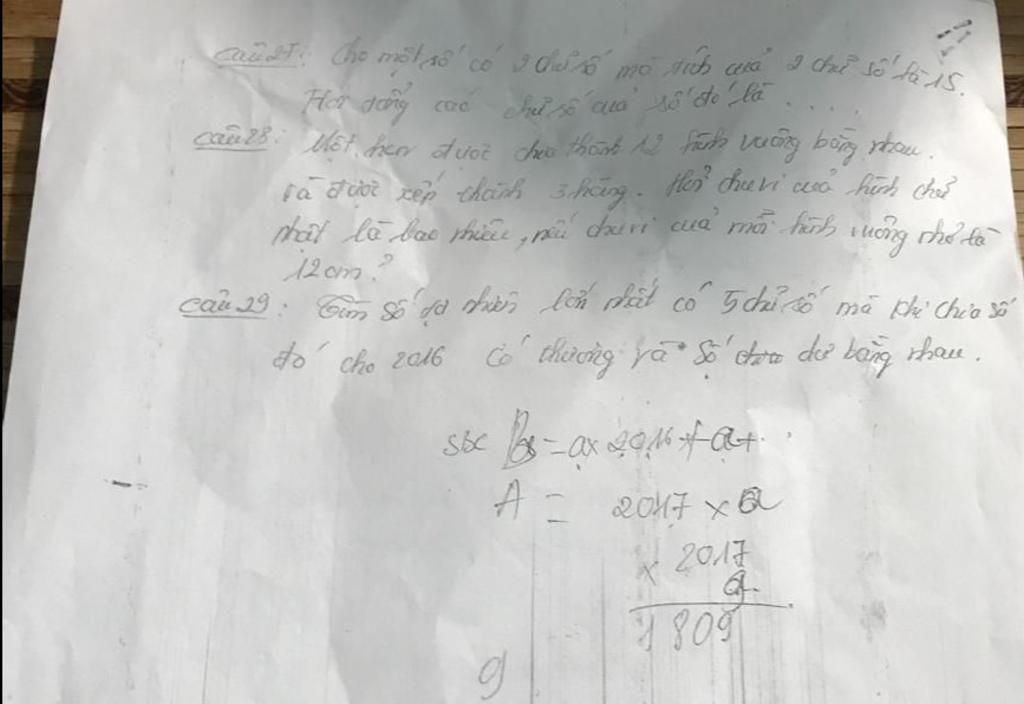 Câu 27: Cho một số có 2 chữ số mà tích của 2 chữ số là 15.
Hỏi tổng các chữ số của số đó là ....
Câu 28: Một hcn được chia thành 12 hình vuông bằng nhau.
và được xếp thành 3 hàng. Hỏi chu vi của hình chữ
nhật là bao nhiêu, nếu chu vi của mỗi hình vuông nhỏ là
12cm?
Câu 29: Tìm số tự nhiên lớn nhất có 5 chữ số mà khi chia số
đó cho 2016 có thương và số dư bằng nhau.
= a x 2016 + a
A = 2017 x a
x 2017
1809
9